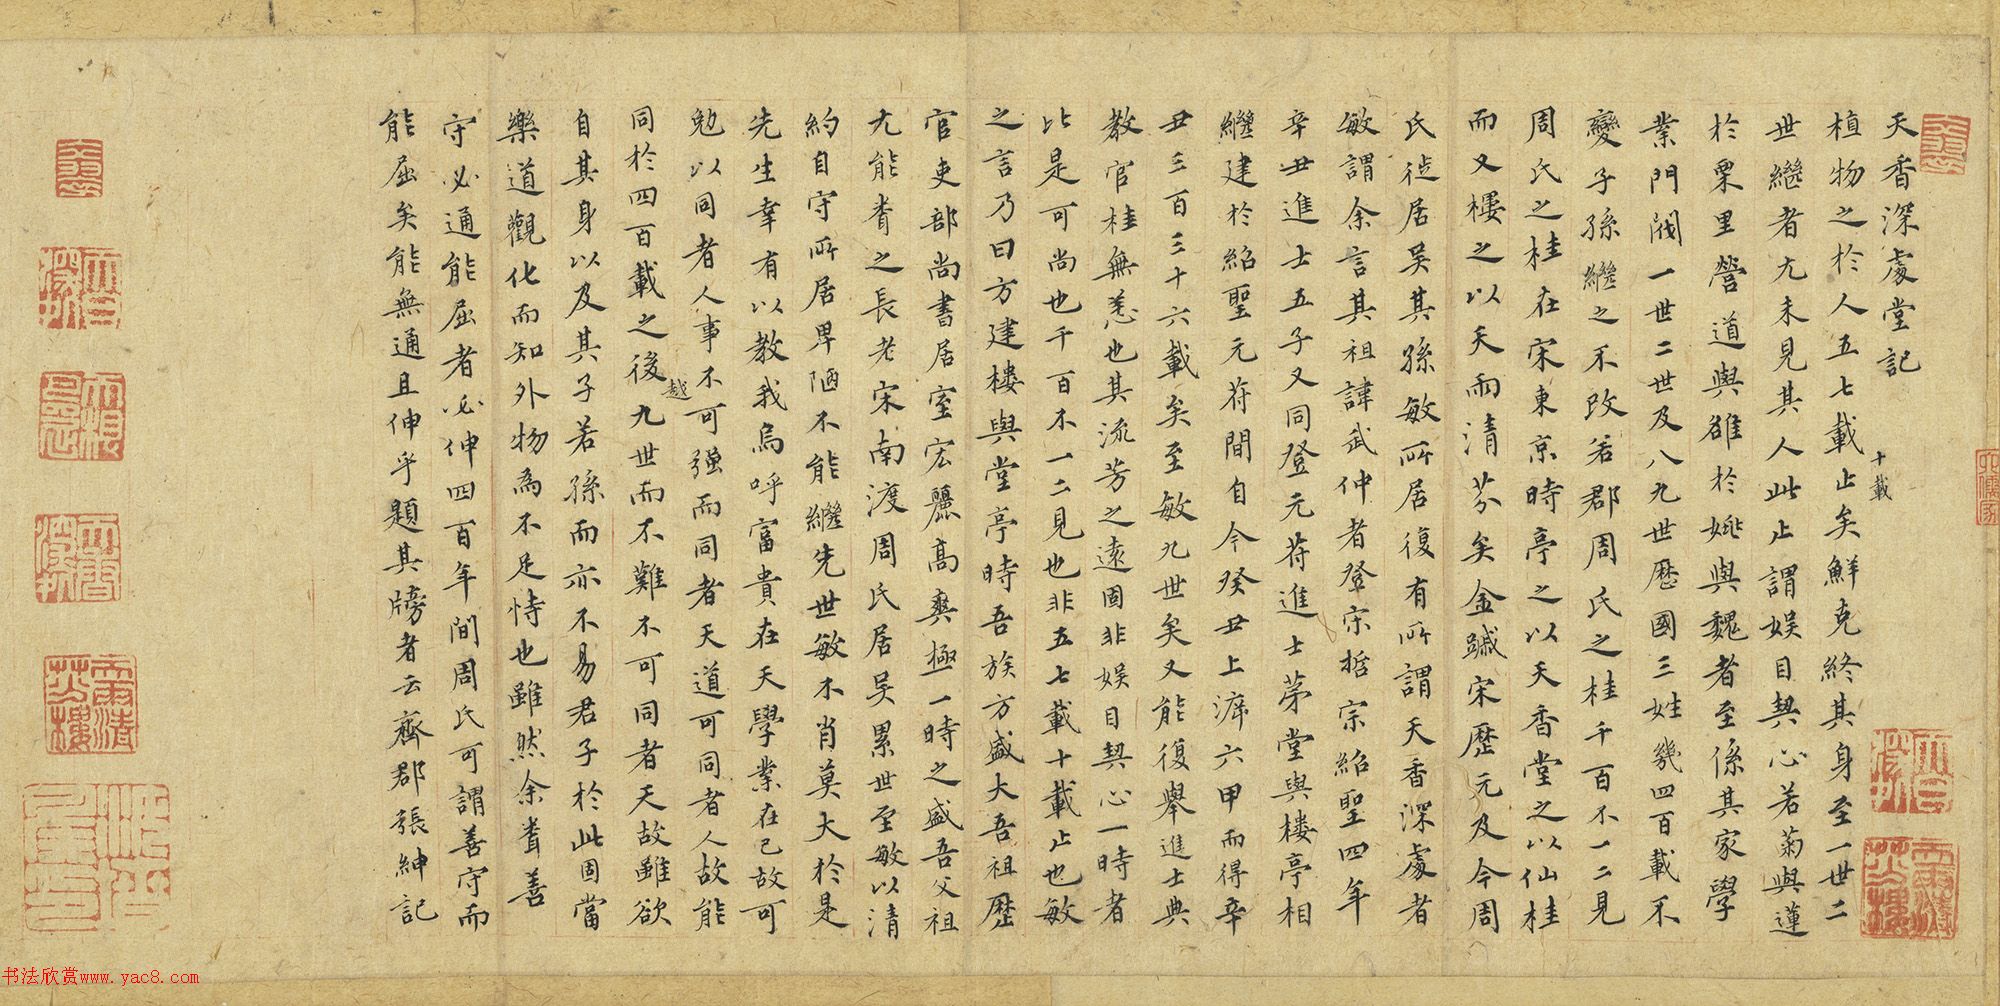 天香深處堂記
植物之於人五七載止矣鮮克終其身至一世二
十載
世繼者尤未見其人此止謂娱目契心若菊與蓮
於栗里營道與雒於姚與魏者至係其家學
業門閥一世二世及八九世歷國三姓幾四百載不
變子孫繼之不改若郡周氏之桂千百不一二見
周氏之桂在宋東京時亭之以天香堂之以仙桂
而又樓之以天雨清芬矣金躑宋歷元及今周
氏徙居吴其孫敏所居復有所謂天香深處者
敏謂余言其祖諱武仲者登宋哲宗紹聖四年
辛丑進士五子又同登元苻進士苐堂與樓亭相
繼建於紹聖元苻間自今癸丑上泝六甲而得辛
丑三百三十六載矣至敏九世矣又能復舉進士典
教官桂無恙也其流芳之遠固非娱目契心一時者
比是可尚也千百不一二見也非五七載十載止也敏
之言乃曰方建樓與堂亭時吾族方盛大吾祖歷
官吏部尚書居室宏麗高爽極一時之盛吾父祖
尤能眷之長老宋南渡周氏居吴累世至敏以清
約自守所居卑陋不能繼先世敏不肖莫大於是
先生幸有以教我烏呼富貴在天學業在己故可
勉以同者人事不可强而同者天道可同者人故能
越
同於四百載之後九世而不難不可同者天故雖欲
自其身以及其子若孫而亦不易君子於此固當
樂道觀化而知外物為不足恃也雖然余耆善
守必通能屈者必伸四百年間周氏可謂善守而
能屈矣能無通且伸乎題其牓者云齊郡張紳記
书法欣赏www.yac8.com